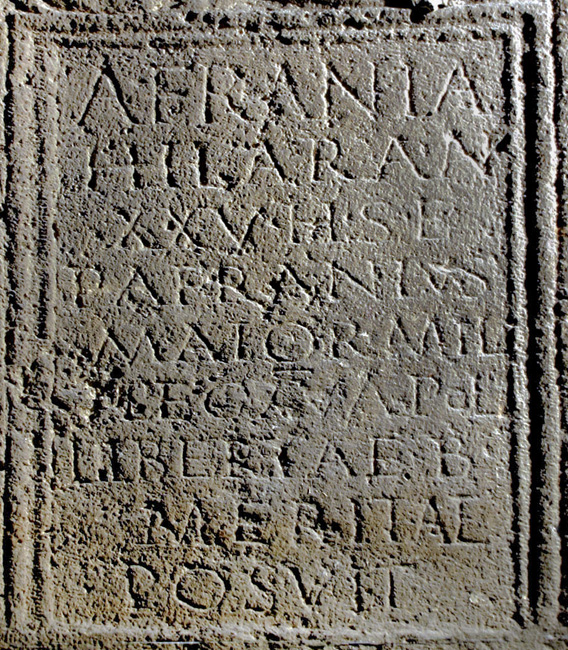 AFRANIA
HILARA·AN
XXV·H·S·E
P·AFRANIVS
MAIOR·MIL
LEG·XV·APOL
LIBERTAE·B
MERITAE
POSVIT